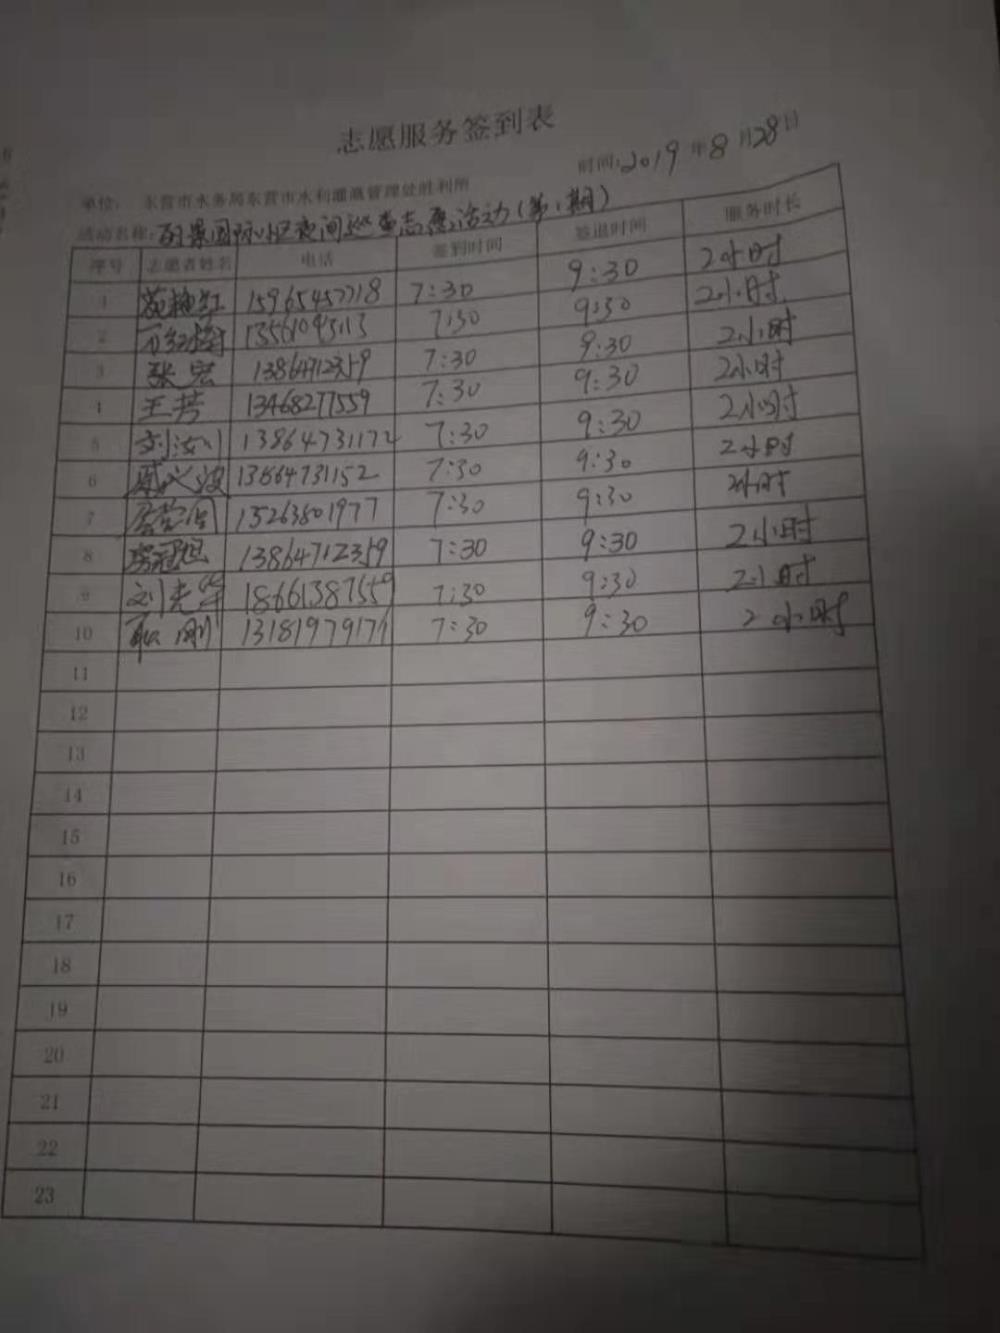 志愿服务签到表
时间:2019年8月28日
单位: 东营市水务局东营市水利灌溉管理处胜利所
活动名称:国际小区夜间巡查志愿活动(第1期)
序号 志愿者姓名 电话 签到时间 签退时间 服务时长
1 15965457718 7:30 9:30 2小时
2 13561043113 7:30 9:30 2小时
3 张宏 13864712319 7:30 9:30 2小时
4 王芳 13468277559 7:30 9:30 2小时
5 刘汝川 13864731172 7:30 9:30 2小时
6 13864731152 7:30 9:30 2小时
7 15263801977 7:30 9:30 2小时
8 13864712319 7:30 9:30 2小时
9 刘光华 18661387559 7:30 9:30 2小时
10 耿刚 13181979171 7:30 9:30 2小时
11
12
13
14
15
16
17
18
19
20
21
22
23